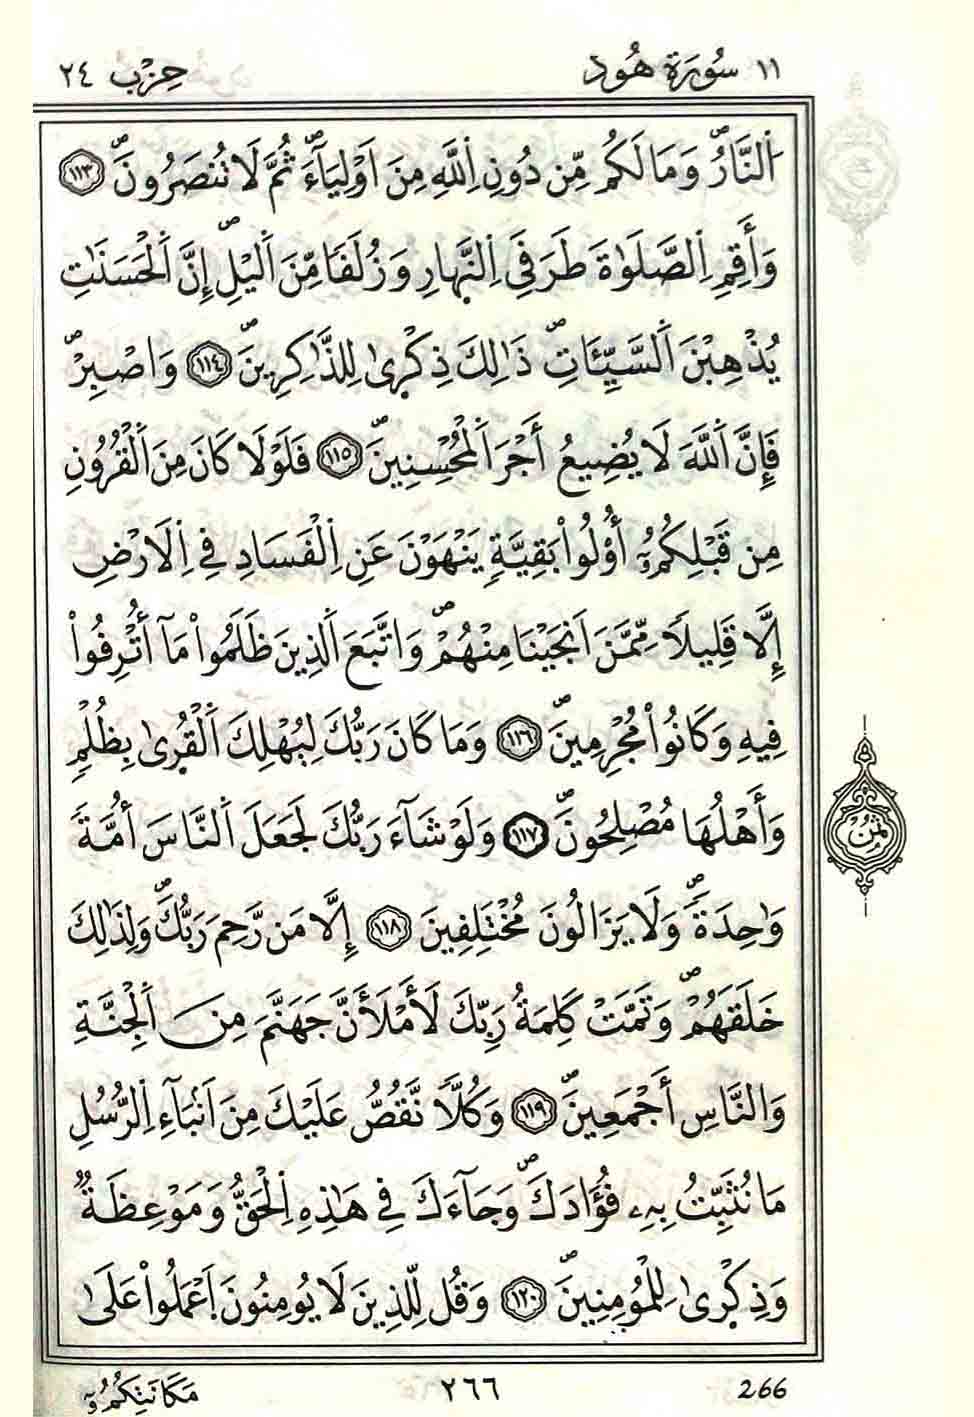 ١١ سُورَةُ هُود
حِزْب ٢٤
اَ۬لنَّارُۖ وَمَا لَكُم مِّن دُونِ اِ۬للَّهِ مِنَ اَوْلِيَآءَۖ ثُمَّ لَا تُنصَرُونَۖ ١١٣
وَأَقِمِ اِ۬لصَّلَوٰةَ طَرَفَيِ اِ۬لنَّهارِ وَزُلَفاٗ مِّنَ اَ۬ليْلِۖ إِنَّ اَ۬لْحَسَنَٰتِ
يُذْهِبْنَ اَ۬لسَّيِّـَٔاتِۖ ذَٰلِكَ ذِكْر۪ىٰ لِلذَّٰكِرِينَۖ ١١٤ وَاصْبِرْۖ
فَإِنَّ اَ۬للَّهَ لَا يُضِيعُ أَجْرَ اَ۬لْمُحْسِنِينَۖ ١١٥ فَلَوْلَا كَانَ مِنَ اَ۬لْقُرُونِ
مِن قَبْلِكُمُۥٓ أُوْلُواْ بَقِيَّةٖ يَنْهَوْنَ عَنِ اِ۬لْفَسَادِ فِي اِ۬لَارْضِ
إِلَّا قَلِيلاٗ مِّمَّنَ اَنجَيْنَا مِنْهُمْۖ وَاتَّبَعَ اَ۬لذِينَ ظَلَمُواْ مَآ أُتْرِفُواْ
فِيهِ وَكَانُواْ مُجْرِمِينَۖ ١١٦ وَمَا كَانَ رَبُّكَ لِيُهْلِكَ اَ۬لْقُر۪ىٰ بِظُلْمٖ
وَأَهْلُهَا مُصْلِحُونَۖ ١١٧ وَلَوْ شَآءَ رَبُّكَ لَجَعَلَ اَ۬لنَّاسَ أُمَّةٗ
وَٰحِدَةٗۖ وَلَا يَزَالُونَ مُخْتَلِفِينَ ١١٨ إِلَّا مَن رَّحِمَ رَبُّكَۖ وَلِذَٰلِكَ
خَلَقَهُمْۖ وَتَمَّتْ كَلِمَةُ رَبِّكَ لَأَمْلَأَنَّ جَهَنَّمَ مِنَ اَ۬لْجِنَّةِ
وَالنَّاسِ أَجْمَعِينَۖ ١١٩ وَكُلّاٗ نَّقُصُّ عَلَيْكَ مِنَ اَنۢبَآءِ اِ۬لرُّسُلِ
مَا نُثَبِّتُ بِهِۦ فُؤَادَكَۖ وَجَآءَكَ فِي هَٰذِهِ اِ۬لْحَقُّ وَمَوْعِظَةٞ
وَذِكْر۪ىٰ لِلْمُومِنِينَۖ ١٢٠ وَقُل لِّلذِينَ لَا يُومِنُونَ اَ۪عْمَلُواْ عَلَىٰ
ثُمُن
مَكَانَتِكُمُۥٓ
٢٦٦
266